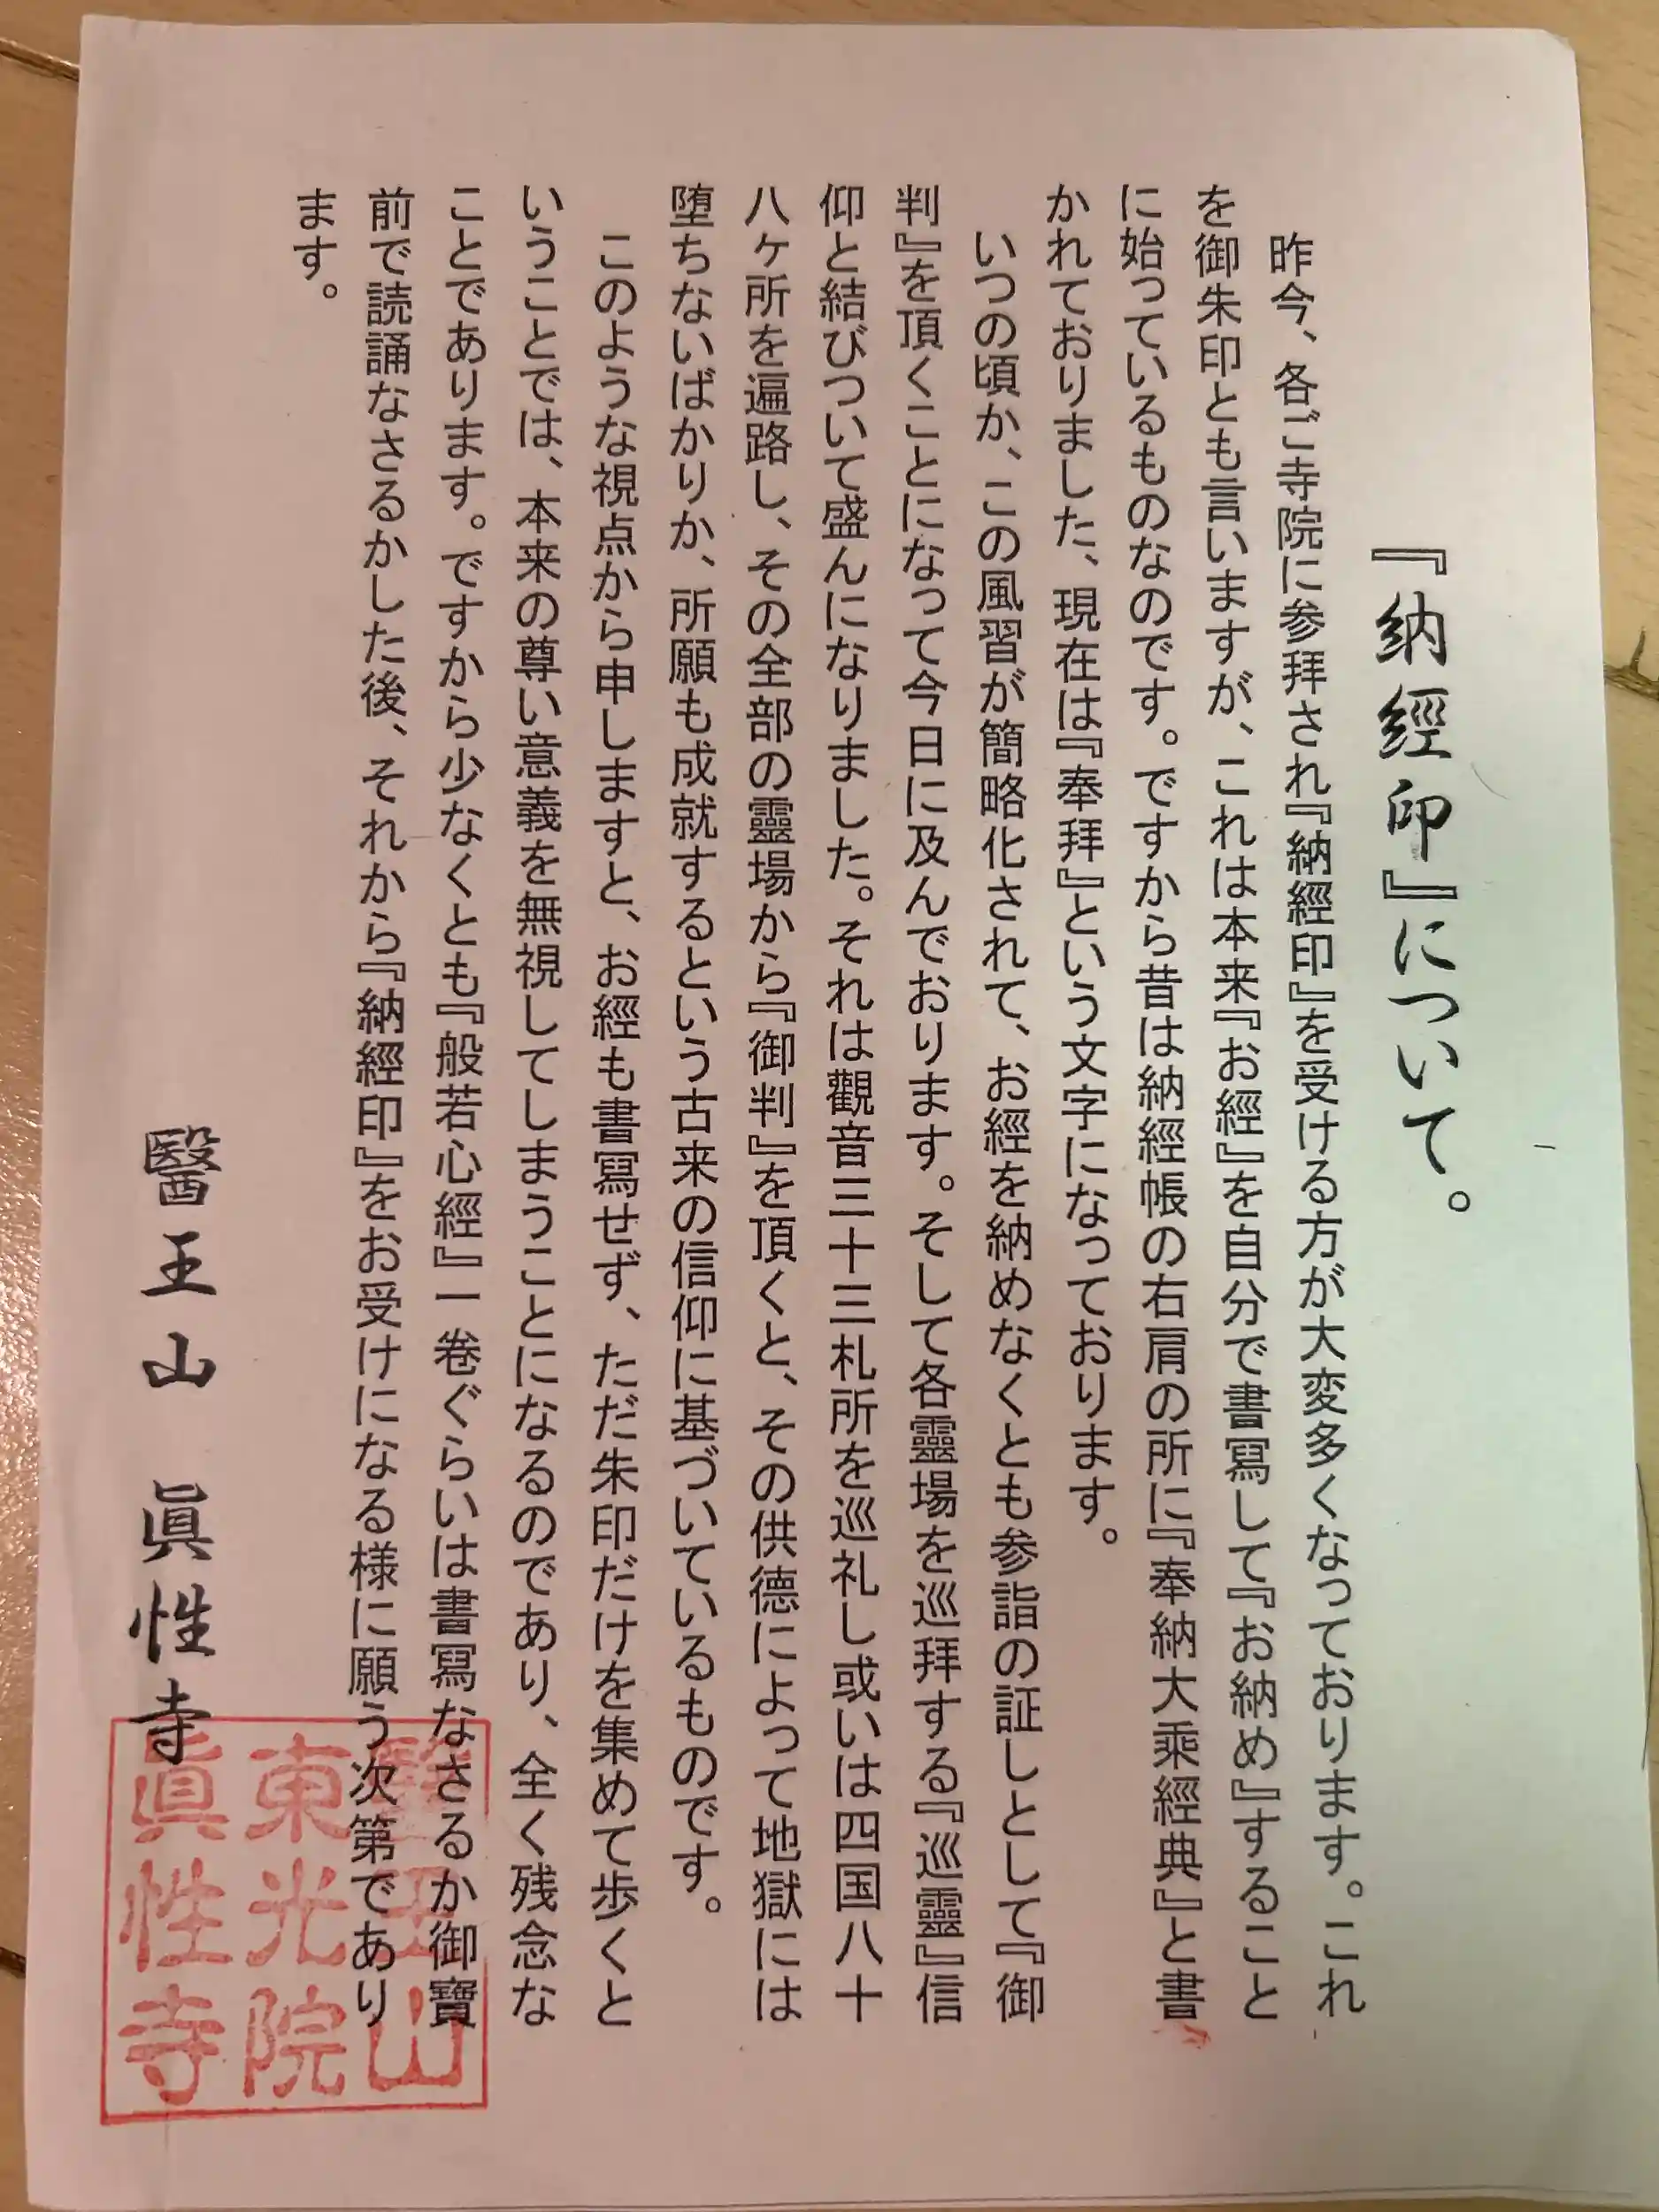 『納經印』について。
昨今、各ご寺院に参拜され『納經印』を受ける方が大変多くなっております。これ
を御朱印とも言いますが、これは本来『お經』を自分で書寫して『お納め』すること
に始っているものなのです。ですから昔は納經帳の右肩の所に『奉納大乘經典』と書
かれておりました、現在は『奉拜』という文字になっております。
いつの頃か、この風習が簡略化されて、お經を納めなくとも参詣の証しとして『御
判』を頂くことになって今日に及んでおります。そして各靈場を巡拜する『巡靈』信
仰と結びついて盛んになりました。それは觀音三十三札所を巡礼し或いは四国八十
八ヶ所を遍路し、その全部の靈場から『御判』を頂くと、その供德によって地獄には
堕ちないばかりか、所願も成就するという古来の信仰に基づいているものです。
このような視点から申しますと、お經も書寫せず、ただ朱印だけを集めて歩くと
いうことでは、本来の尊い意義を無視してしまうことになるのであり、全く残念な
ことであります。ですから少なくとも『般若心經』一巻ぐらいは書寫なさるか御寶
前で読誦なさるかした後、それから『納經印』をお受けになる様に願う次第であり
ます。
醫王山 眞性寺
醫王山
東光院
眞性寺